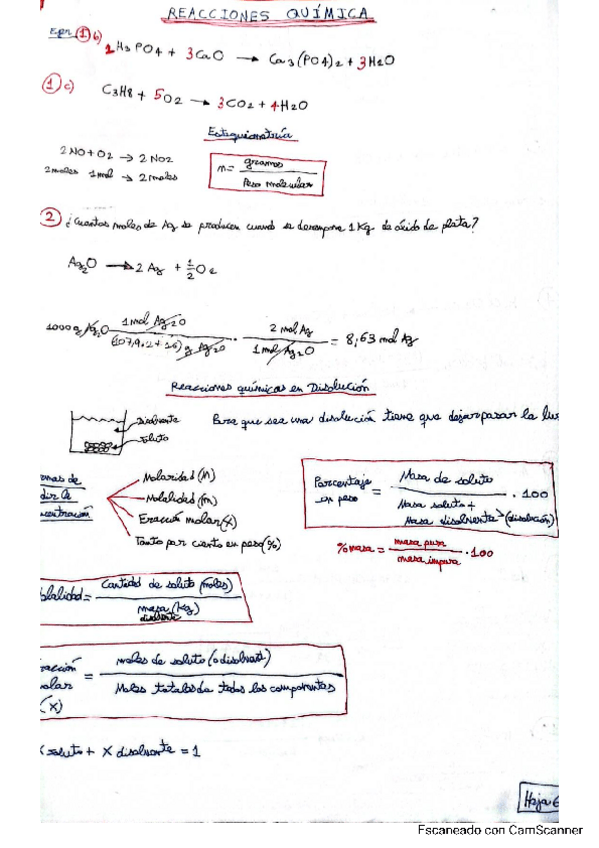 REACCIONES QUÍMICA
Ejer. 1 b) 2H3PO4 + 3CaO → Ca3(PO4)2 + 3H2O
1 c) C3H8 + 5O2 → 3CO2 + 4H2O
Estequiometría
2NO + O2 → 2NO2
2moles 1mol → 2moles
n= gramos / Peso molecular
2 ¿Cuantos moles de Ag se producen cuando se descompone 1Kg de óxido de plata?
Ag2O → 2Ag + 1/2 O2
1000g Ag2O · 1mol Ag2O / (107,9.2+16)g Ag2O · 2 mol Ag / 1mol Ag2O = 8,63 mol Ag
Reacciones químicas en Disolución
Disolvente
Soluto
Para que sea una disolución tiene que dejar pasar la luz
rmas de
dir la
centración
Molaridad (M)
Molalidad (m)
Fracción molar (X)
Tanto por ciento en peso (%)
Porcentaje en peso = Masa de soluto / Masa soluto + Masa disolvente (disolución) . 100
% masa = masa pura / masa impura · 100
olalidad = Cantidad de soluto (moles) / masa (kg) disolvente
racción molar (X) = moles de soluto (o disolvent) / Moles totales de todos los componentes
X soluto + X disolvente = 1
Hoja 6
Escaneado con CamScanner